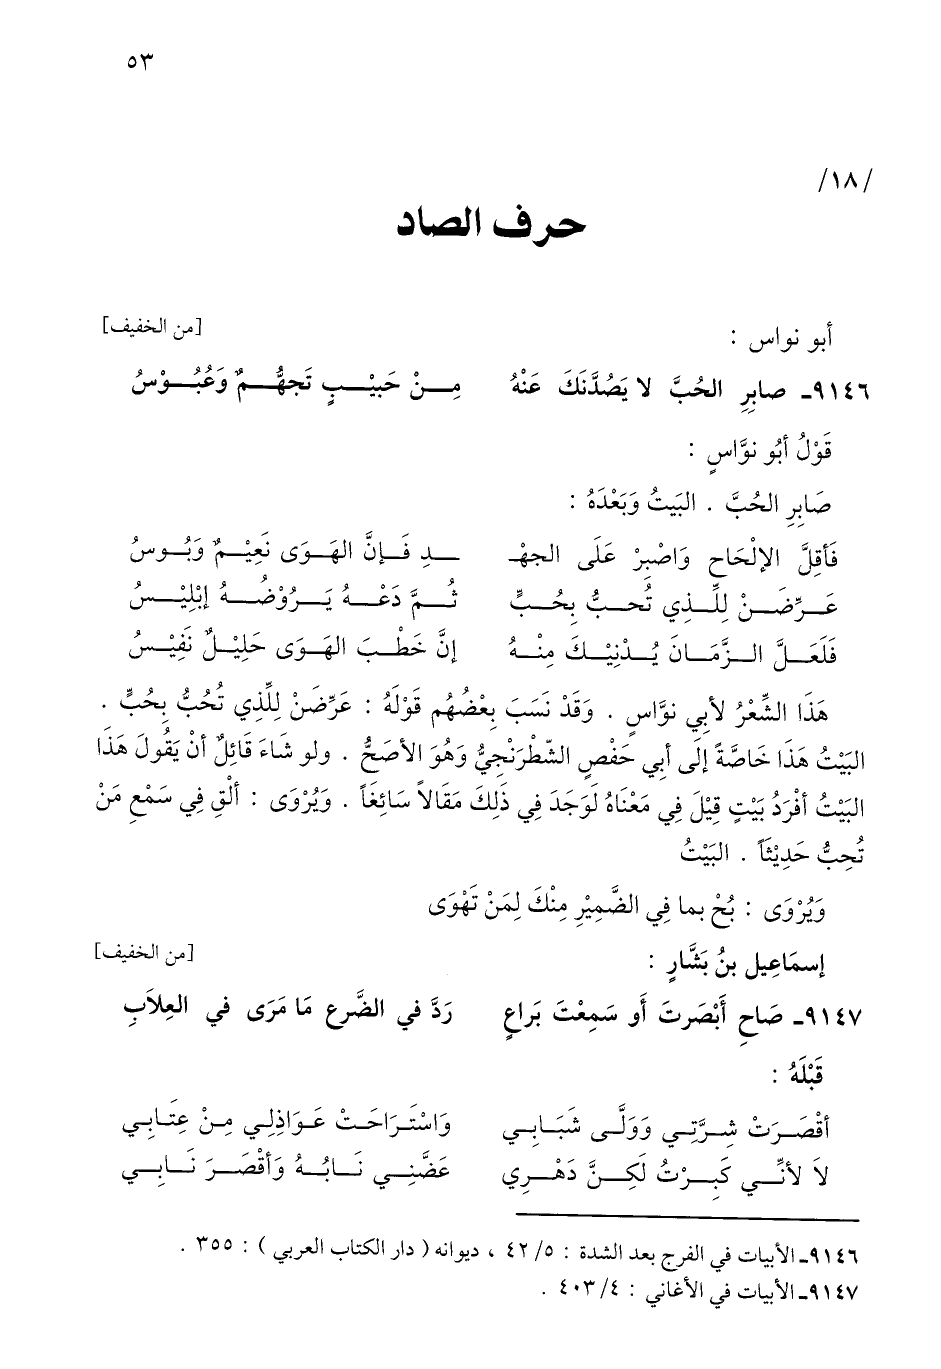 ٥٣
/١٨/
حرف الصاد
أبو نواس : [من الخفيف]
٩١٤٦ـ صابِرِ الحُبَّ لا يَصُدَّنَكَ عَنْهُ مِـنْ حَبيْـبٍ تَجهُّـمٌ وَعُبُـوْسُ
قَوْلُ أبُو نوَّاسٍ :
صَابِرِ الحُبَّ . البَيتُ وَبَعْدَهُ :
فَأقِلَّ الإلْحَاح وَاصْبِرْ عَلَى الجهْـ ـدِ فَـإنَّ الهَـوَى نَعِيْـمٌ وَبُـوسُ
عَـرِّضَـنْ لِلَّـذِي تُحـبُّ بِحُـبٍّ ثُـمَّ دَعْـهُ يَـرُوْضُـهُ إبْلِيْـسُ
فَلَعَـلَّ الـزَّمَـانَ يُـدْنِيْـكَ مِنْـهُ إنَّ خَطْـبَ الهَـوَى جَلِيْـلٌ نَفِيْسُ
هَذَا الشِّعْرُ لأبي نوَّاسٍ . وَقَدْ نَسَبَ بعْضُهُم قَوْلَهُ : عَرِّضَنْ لِلَّذِي تُحُبُّ بِحُبٍّ .
البَيْتُ هَذَا خَاصَّةً إلَى أبي حَفْصٍ الشّطْرَنْجِيُّ وَهُوَ الأصَحُّ . ولو شَاءَ قَائِلٌ أنْ يَقُولَ هَذَا
البَيْتُ أفْرَدُ بَيْتٍ قِيْلَ فِي مَعْنَاهُ لَوَجَدَ فِي ذَلِكَ مَقَالاً سَائِغَاً . وَيُرْوَى : ألْقِ فِي سَمْعِ مَنْ
تُحِبُّ حَدِيْثَاً . البَيْتُ
وَيُرْوَى : بُحْ بما فِي الضَّمِيْرِ مِنْكَ لِمَنْ تَهْوَى
إسمَاعِيل بنُ بَشَّارٍ : [من الخفيف]
٩١٤٧ـ صَاحِ أَبْصَرتَ أَو سَمِعْتَ بَراعٍ رَدَّ في الضَّرع مَا مَرَى في العِلاَبِ
قَبْلَهُ :
أقْصَـرَتْ شِـرَّتِـي وَوَلَّـى شَبَـابِـي وَاسْتَـرَاحَـتْ عَـوَاذِلِـي مِـنْ عِتَـابِـي
لاَ لأنِّـي كَبِـرْتُ لَكِـنَّ دَهْـرِي عَضَّنِـي نَـابُـهُ وَأقْصَـرَ نَـابِـي
٩١٤٦ـ الأبيات في الفرج بعد الشدة : ٤٢/٥ ، ديوانه ( دار الكتاب العربي ) : ٣٥٥ .
٩١٤٧ـ الأبيات في الأغاني : ٤٠٣/٤ .